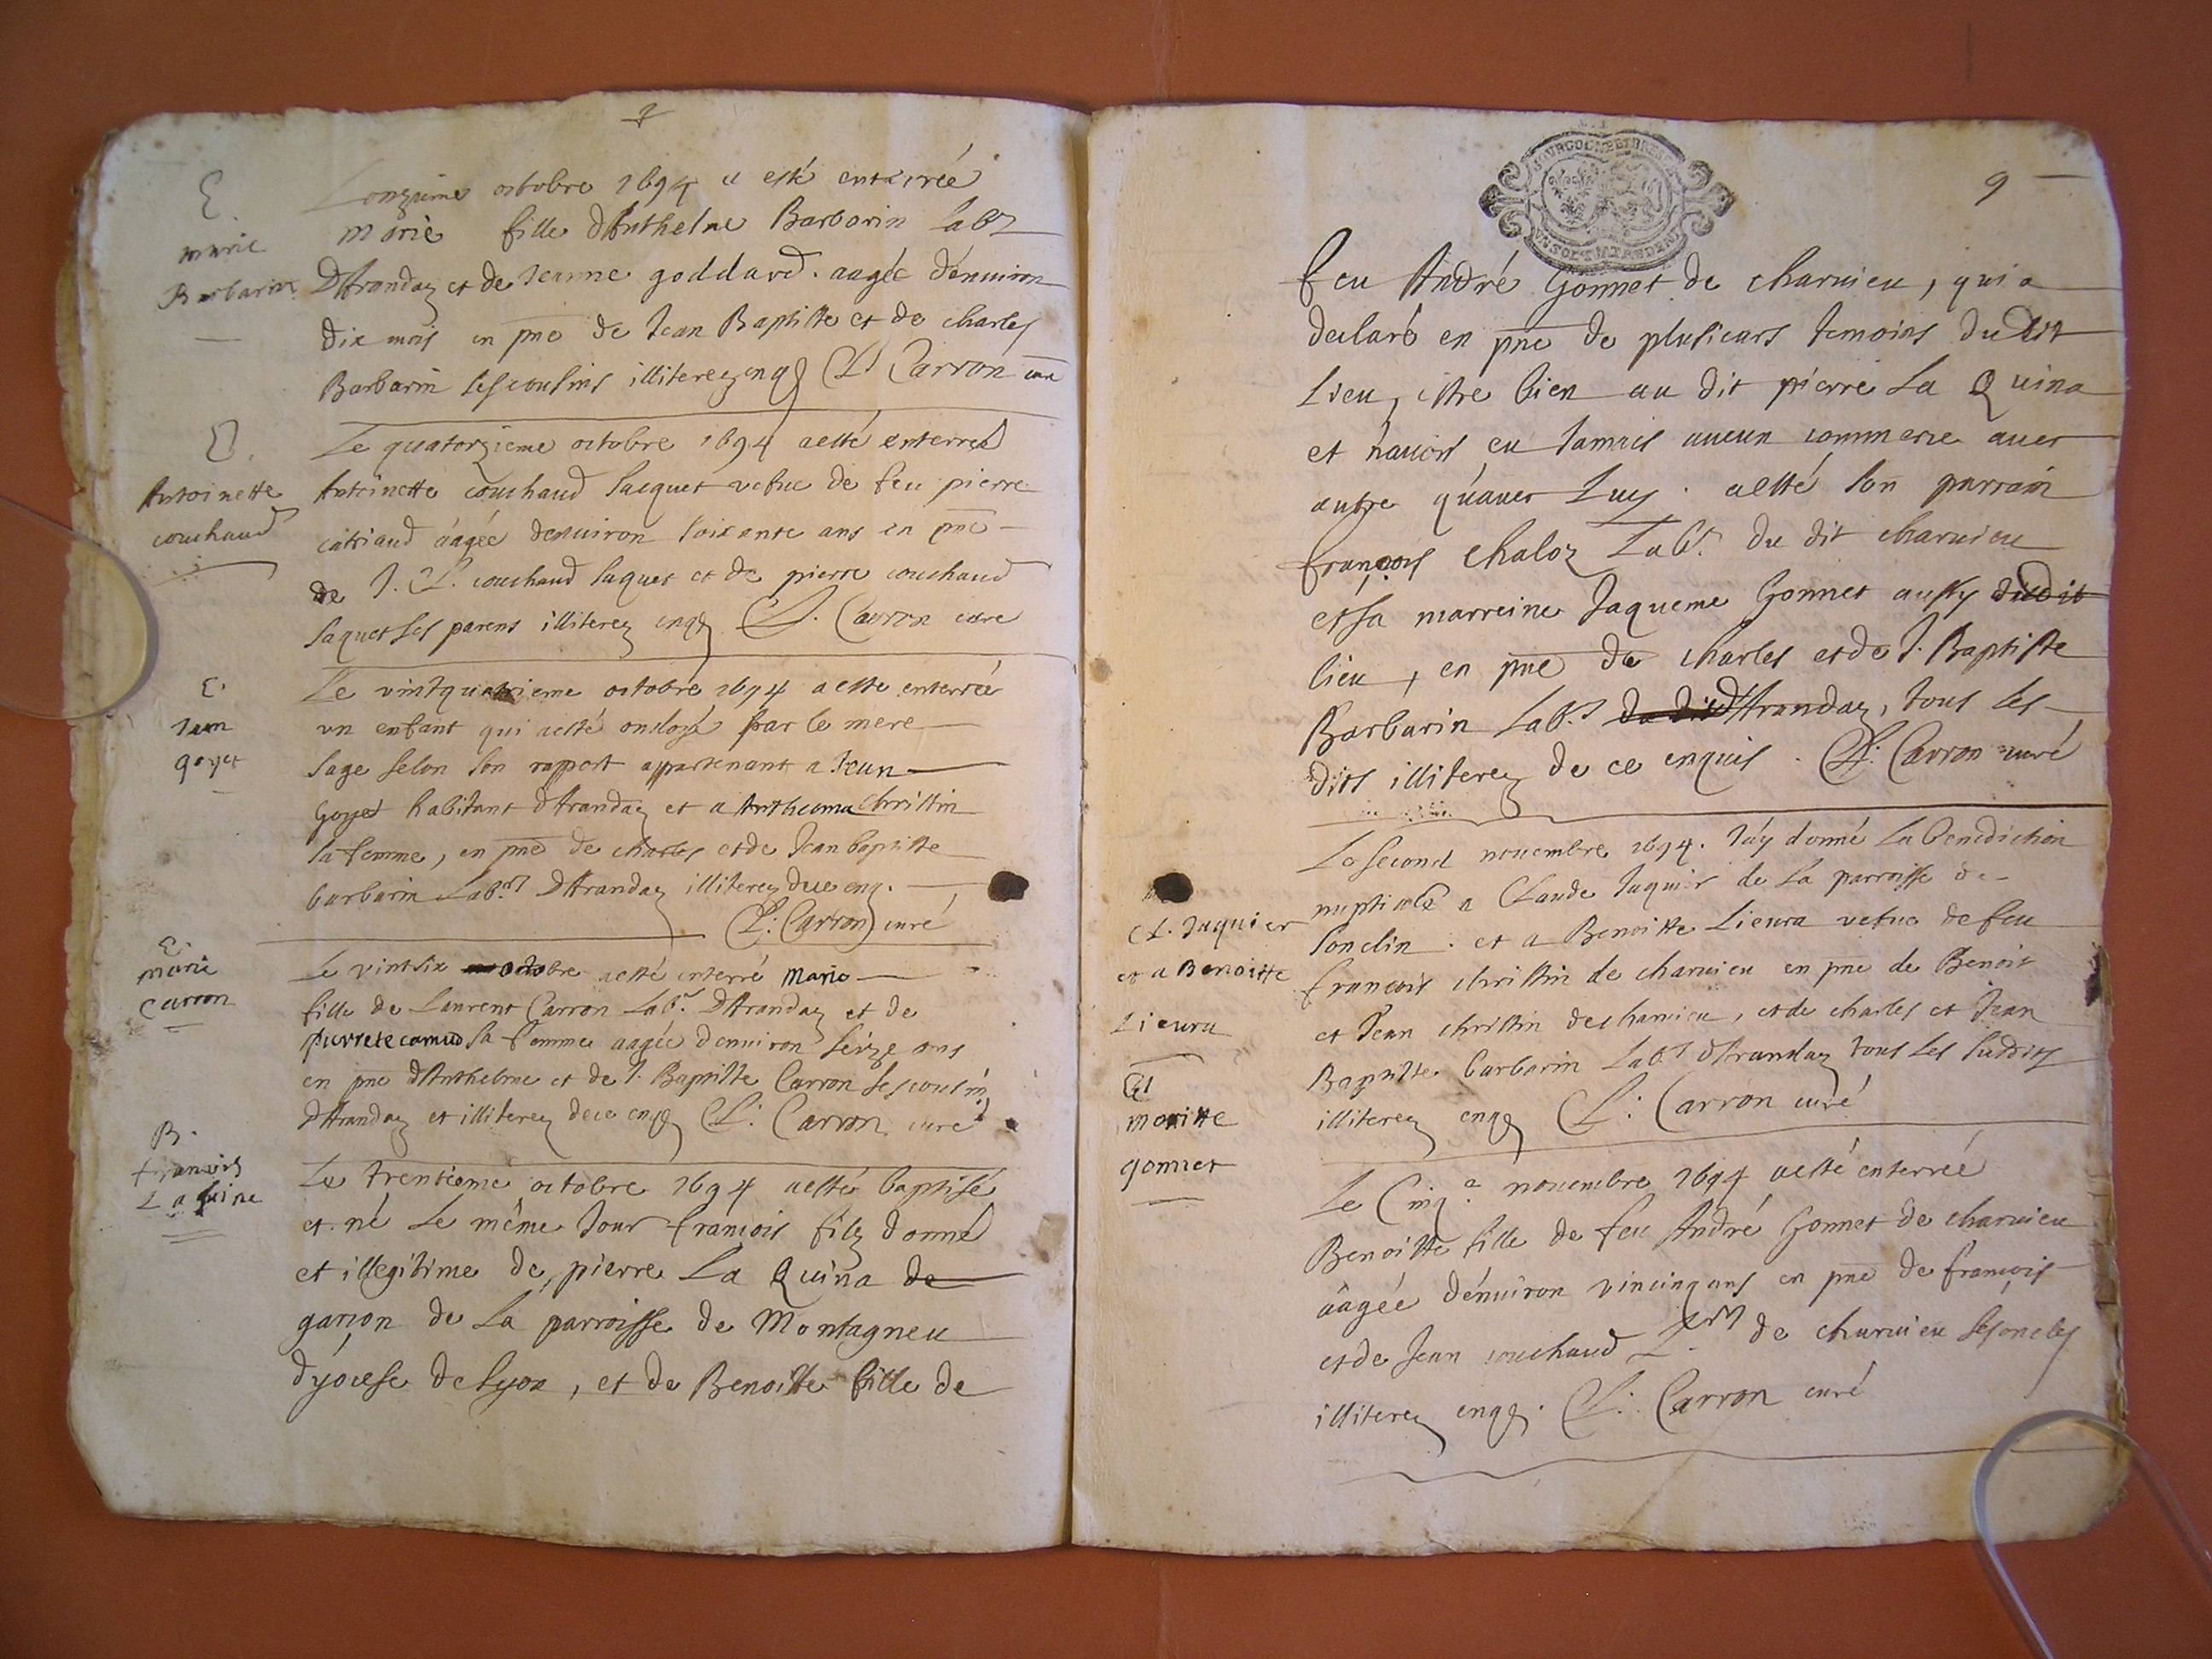 E.
marie
Barbarin
Lonziême octobre 1694 a esté enterrée
Marie fille dAnthelme Barbarin labr
DAranday et de Jeanne goddard. aagée dénuiron
dix mois en pnce de Jean Baptiste et de charles
Barbarin ses cousins illiterez enqs Cl Carron curé
E.
Antoinette
couchaud
Le quatorzieme octobre 1694 aesté enterreé
Antoinette couchaud Jacquet vefue de feu pierre
aagée denuiron soixante ans en pnce
de J. Cl. couchaud Jaquet et de pierre couchaud
Jaquet ses parens illiterez enqs Cl. Carron curé
E.
Jean
goyet
Le vintquatrieme octobre 1694 a esté enterrée
vn enfant qui aesté ondoyé par le mere
sage selon son rapport appartenant a Jean
Goyet habitant dAranday et a Anthelma christin
sa femme, en pnce de charles et de Jean baptiste
barbarin Labrs DAranday illiterez de ce enq.
Cl. Carron curé
E.
marie
Carron
Le vintsix octobre aesté enterré Marie
fille de Laurent Carron Labr. DAranday et de
pierrete camud sa femme aagée denuiron seize ans
en pnce dAnthelme et de J. Baptiste Carron ses cousins
dAranday et illiterez de ce enqs Cl. Carron curé
B.
francois
La quine
Le trentieme octobre 1694 aesté baptisé
et né le même Jour francois filz donné
et illegitime de pierre La Quina de
garçon de La parroisse de Montagneu
dyocese de Lyon, et de Benoitte fille de
9
feu André Gonnet de charuieu, qui a
declaré en pnce de plusieurs temoins dudit
Lieu, estre bien au dit pierre La Quina
et nauoir eu Jamais aucun commerce auec
autre qu'auec Luy. aesté son parrain
françois chaloz Labr. du dit charuieu
et sa marreine Jaqueme Gonnet aussy dudit
lieu, en pnce de charles et de J. Baptiste
Barbarin Labrs du dit dAranday, tous les
dits illiterez de ce enquis. Cl. Carron curé
Cl. Jaquier
et a Benoitte
Lieura
Le second nouembre 1694. J'ay donné La benediction
nuptiale a Claude Jaquier de La parroisse de
Sonclin. et a Benoitte Lieura vefue de feu
francois christin de charuieu en pnce de Benoit
et Jean christin de charuieu, et de charles et Jean
Baptiste barbarin Labrs dAranday tous les susdits
illiterez enqs Cl. Carron curé
E
gonnet
Le Cinqe nouembre 1694 aesté enterreé
Benoitte fille de feu André Gonnet de charuieu
aagée dénuiron vincinq ans en pnce de françois
et de Jean couchaud Lrs de charuieu ses oncles
illiterez enqs. Cl. Carron curé